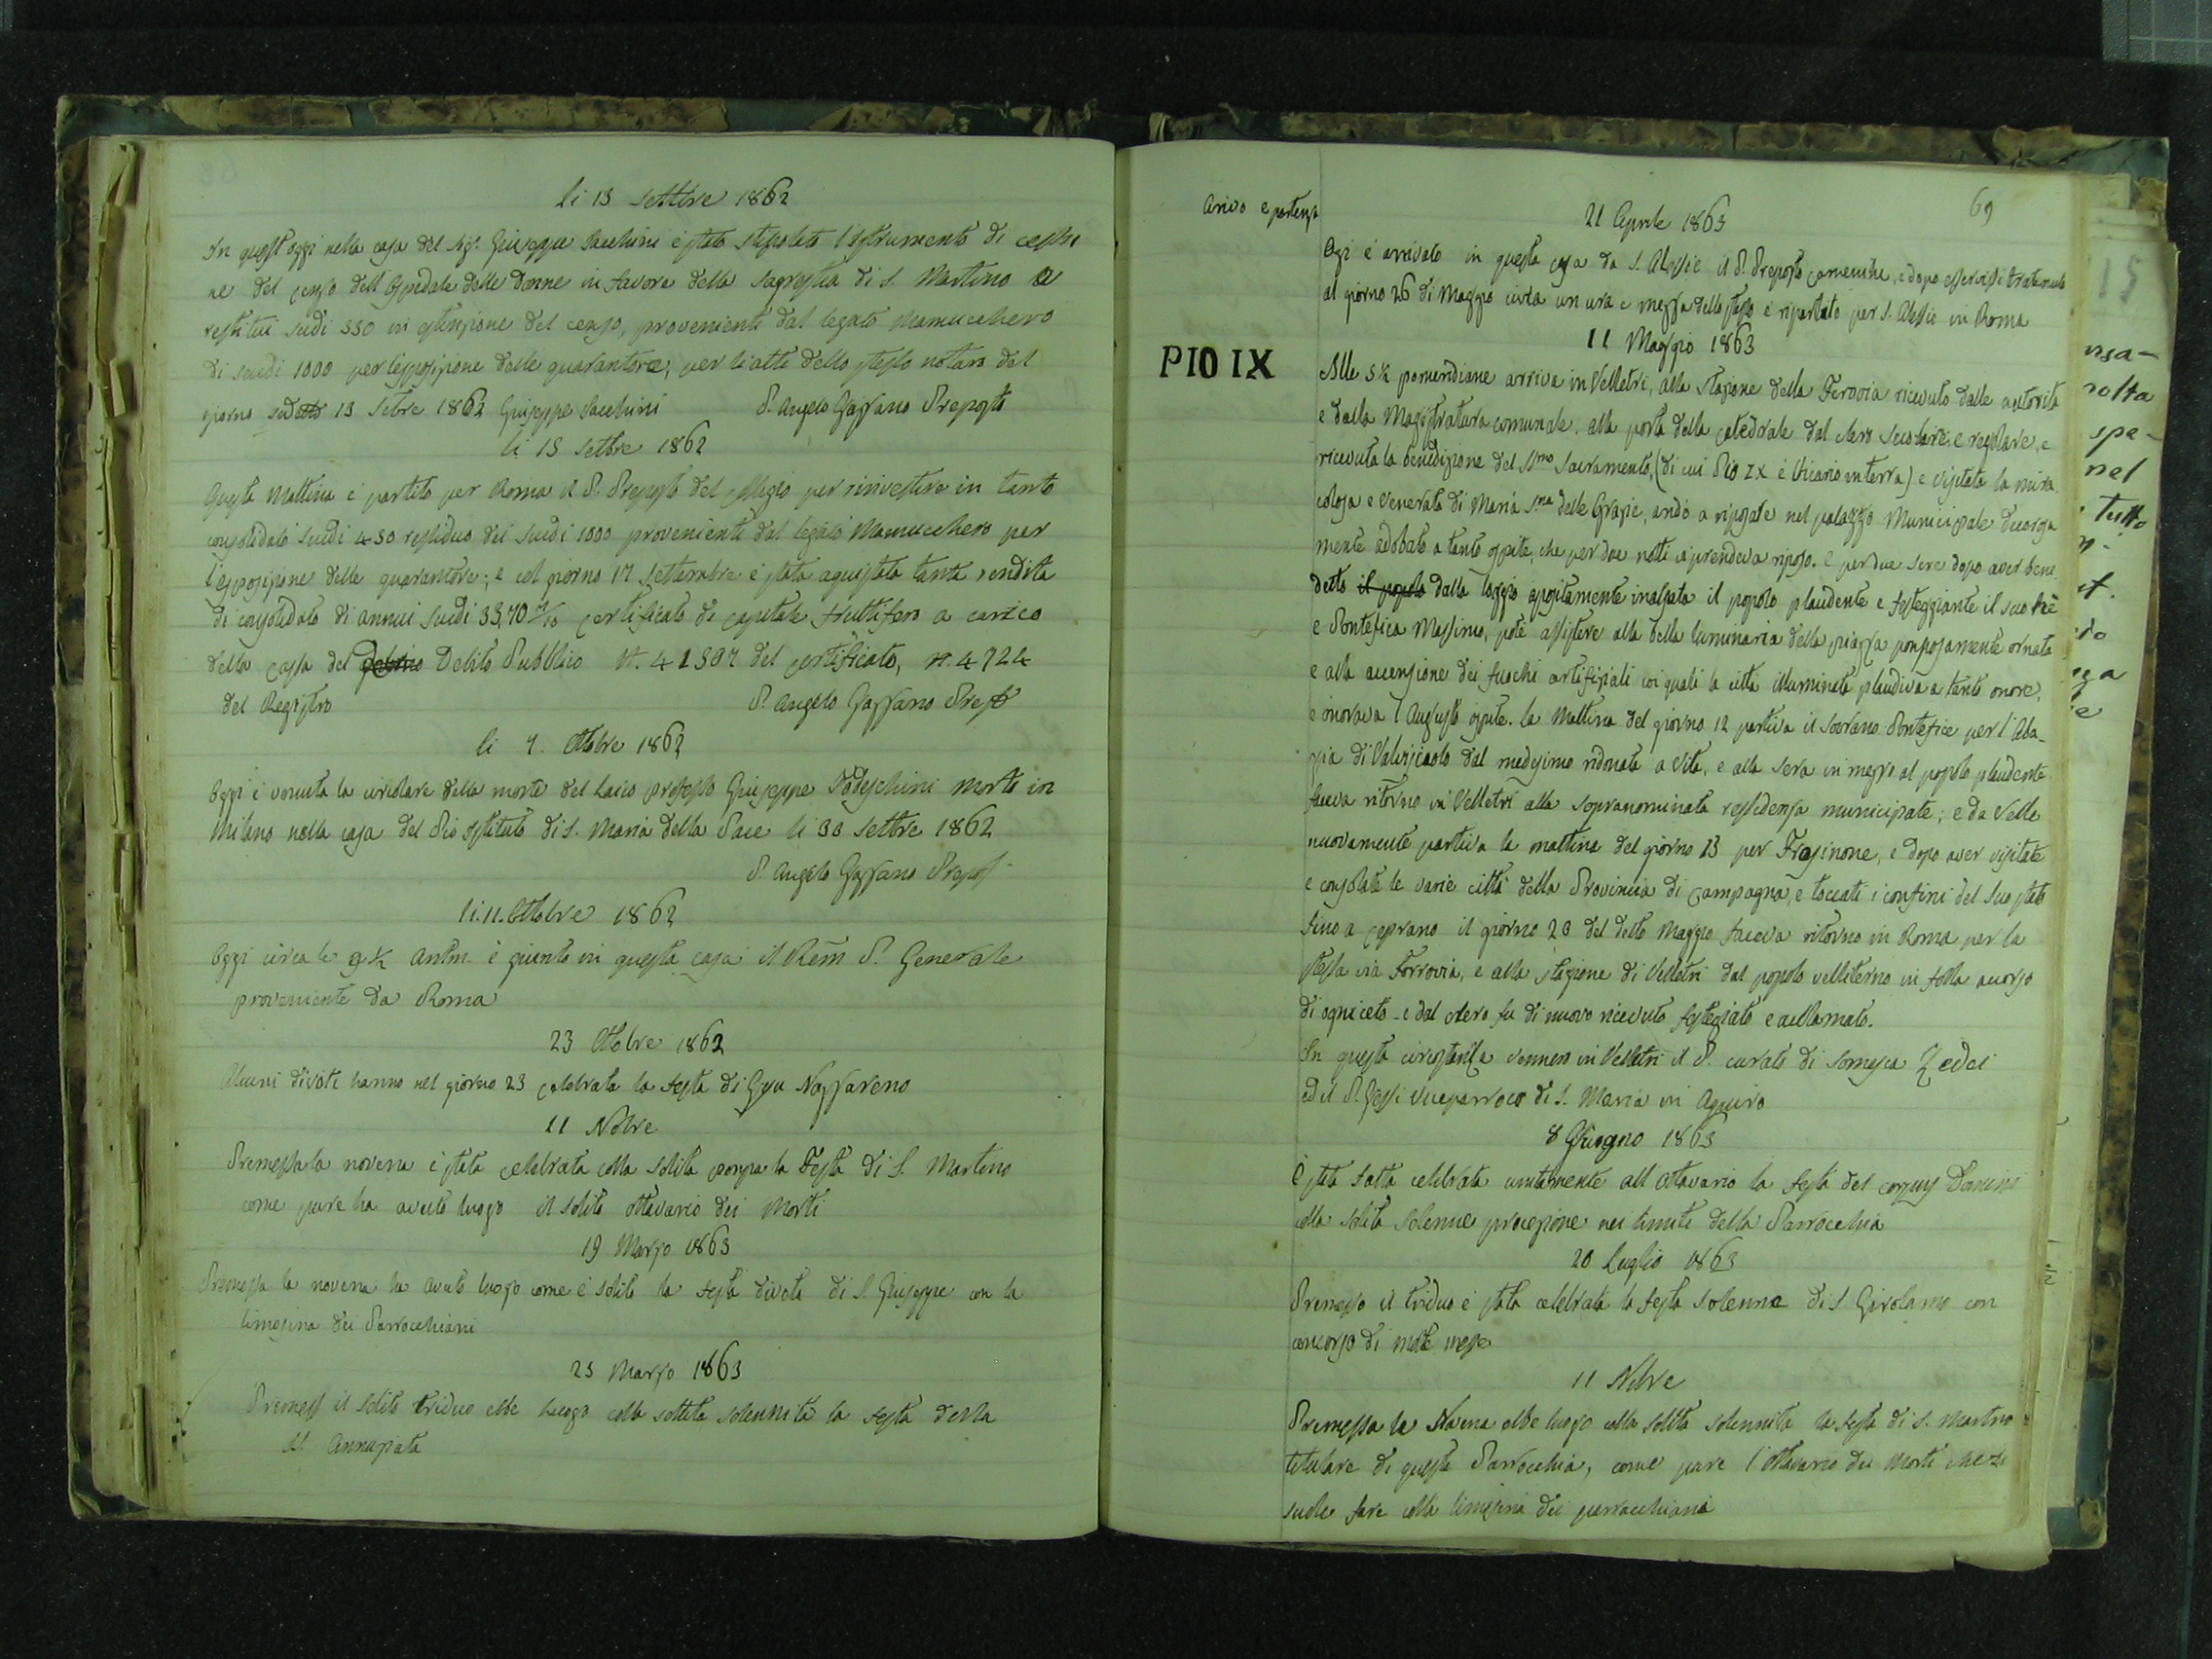 li 13 Settbre 1862
In quest'oggi nella casa del Sigr. Giuseppe Sacchini è stato stipolato l'istrumento di cessio
ne del censo dell'Ospedale delle Donne in favore della Sagrestia di S. Martino e
restituì scudi 550 in estinzione del censo, provenienti dal legato Mamucchero
di scudi 1000 per l'esposizione delle quarantore, per li atti dello stesso notaro del
giorno sudetto 13 Setbre 1862 Giuseppe Sacchini P. Angelo Gaffano Preposto
li 15 Settbre 1862
Questa mattina è partito per Roma il P. Preposto del Collegio per rinvestire in tanto
consolidato scudi 450 residuo dei scudi 1000 provenienti dal legato Mamucchero per
l'esposizione delle quarantore; e col giorno 17 Settembre è stata aquistata tanta rendita
di consolidato di annui scudi 33,70 certificato di capitale fruttifero a carico
della cassa del Debito Pubblico N. 41507 del certificato, N. 4724
del Registro P. Angelo Gaffano Prepto
li 7. Ottobre 1862
Oggi è venuta la circolare della morte del Laico professo Giuseppe Todeschini morto in
Milano nella casa del Pio Istituto di S. Maria della Pace li 30 Settbre 1862
P. Angelo Gaffano Prepos
li. 11. Ottobre 1862
Oggi circa le 9 ½ Antm. è giunto in questa casa il Rem̃ P. Generale
proveniente da Roma
23 Ottobre 1862
Alcuni divoti hanno nel giorno 23 celebrata la festa di Gesu Nazzareno
11 Nobre
Premessa la novena è stata celebrata colla solita pompa la Festa di S. Martino
come pure ha avuto luogo il solito ottavario dei Morti
19 Marzo 1863
Premessa la novena ha avuto luogo come è solito la festa divota di S. Giuseppe con la
limosina dei Parrocchiani
25 Marzo 1863
Premess il solito triduo ebbe luogo colla sollita solennità la festa della
SS. Annuziata
69
Arivo e partenza
21 Aprile 1863
Ogi è arrivato in questa casa da S. Alessio il P. Preposto , e dopo esservisi tratenuto
al giorno 26 di Maggio circa un ura e mezza dello stesso è ripartito per S. Alessio in Roma
11 Maggio 1863
PIO IX
Alle 5 ½ pomeridiane arriva in Velletri, alla stazione della Ferrovia ricevuto dalle autorità
e dalla Magistratura comunale. alla porta della catedrale dal clero secolare e regolare, e
ricevuta la benedizione del SSmo Sacramento, (di cui Pio IX è Vicario in terra) e visitata la mira
colosa e venerata di Maria Sma delle Grazie, andò a riposare nel palazzo Municipale decorosa
mente adobato a tanto ospite, che per due notti vi prendeva riposo. e per due sere dopo aver bene
detto il popolo dalla loggia apositamente inalzata il popolo plaudente e festeggiante il suo Rè
e Pontefice Massimo, potè assistere alla bella luminaria della piazza pomposamente ornata
e alla accensione dei fuochi artifiziali coi quali la città illuminata plaudiva a tanto onore,
e onorava l'Augusto ospite. la Mattina del giorno 12 partiva il Sovrano Pontefice per l'Aba_
zia di Valvisciolo dal medesimo ridonata a vita, e alla sera in mezzo al popolo plaudente
faceva ritorno in Velletri alla sopranominata residenza municipale; e da Velle
nuovamente partiva la mattina del giorno 13 per Frosinone, e dopo aver visitate
e consolate le varie città della Provincia di Campagna, e toccati i confini del Suo stato
fino a Ceprano il giorno 20 del detto Maggio faceva ritorno in Roma per la
stessa via Ferrovia, e alla stazione di Velletri dal popolo velliterno in folla accorso
di ogni ceto e dal clero fu di nuovo ricevuto festegiato e acllamato.
In questa circostanza vennero in Velletri il P. curato di Somasca Zedei
ed il P. Gessi Viceparroco di S. Maria in Aquiro
8 Giugno 1863
È stata fatta celebrata unitamente all'Ottavario la festa del corpus Domini
colla solita solenne processione nei limiti della Parrocchia
20 Luglio 1863
Premesso il triduo è stata celebrata la festa solenne di S. Girolamo con
concorso di molte messe
11 Nobre
Premessa la Novena ebbe luogo colla solita solennità la festa di S. Martino
titulare di questa Parrocchia, come pure l'Ottavario dei Morti che si
suole fare colla limosina dei parrocchiani
15
rolta
spe-
nel
tutto